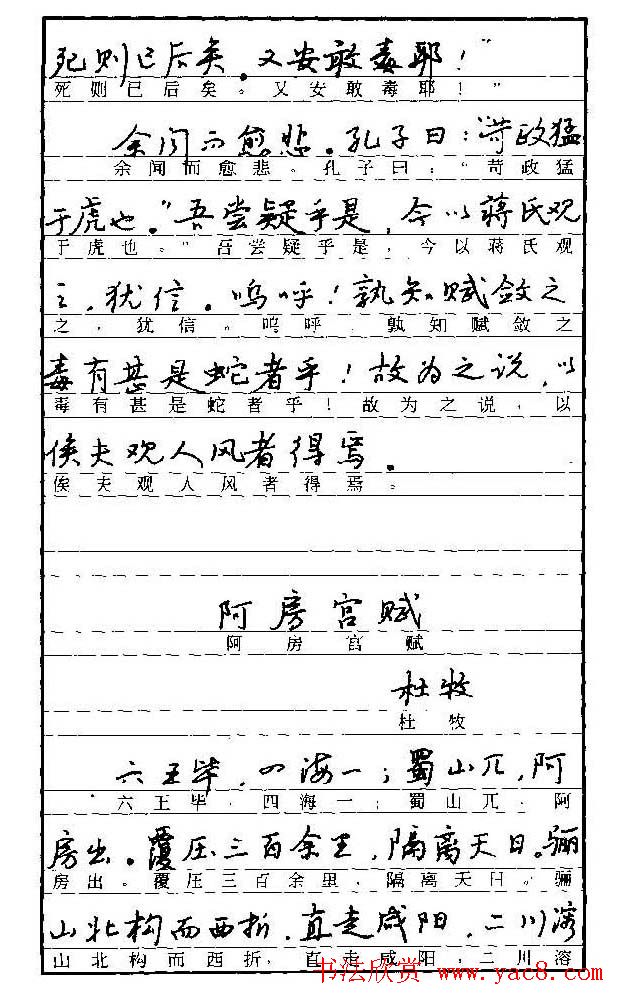 死则已后矣。又安敢毒耶！"
死则已后矣。又安敢毒耶！"
余闻而愈悲。孔子曰："苛政猛
余闻而愈悲。孔子曰："苛政猛
于虎也。"吾尝疑乎是，今以蒋氏观
于虎也。"吾尝疑乎是，今以蒋氏观
之，犹信。呜呼！孰知赋敛之
之，犹信。呜呼，孰知赋敛之
毒有甚是蛇者乎！故为之说，以
毒有甚是蛇者乎！故为之说，以
俟夫观人风者得焉。
俟夫观人风者得焉。
阿房宫赋
阿房宫赋
杜牧
杜牧
六王毕，四海一；蜀山兀，阿
六王毕，四海一；蜀山兀，阿
房出。覆压三百余里，隔离天日。骊
房出。覆压三百余里，隔离天日。骊
山北构而西折，直走咸阳，二川溶
山北构而西折，直走咸阳，二川溶
书法欣赏 www.yac8.com